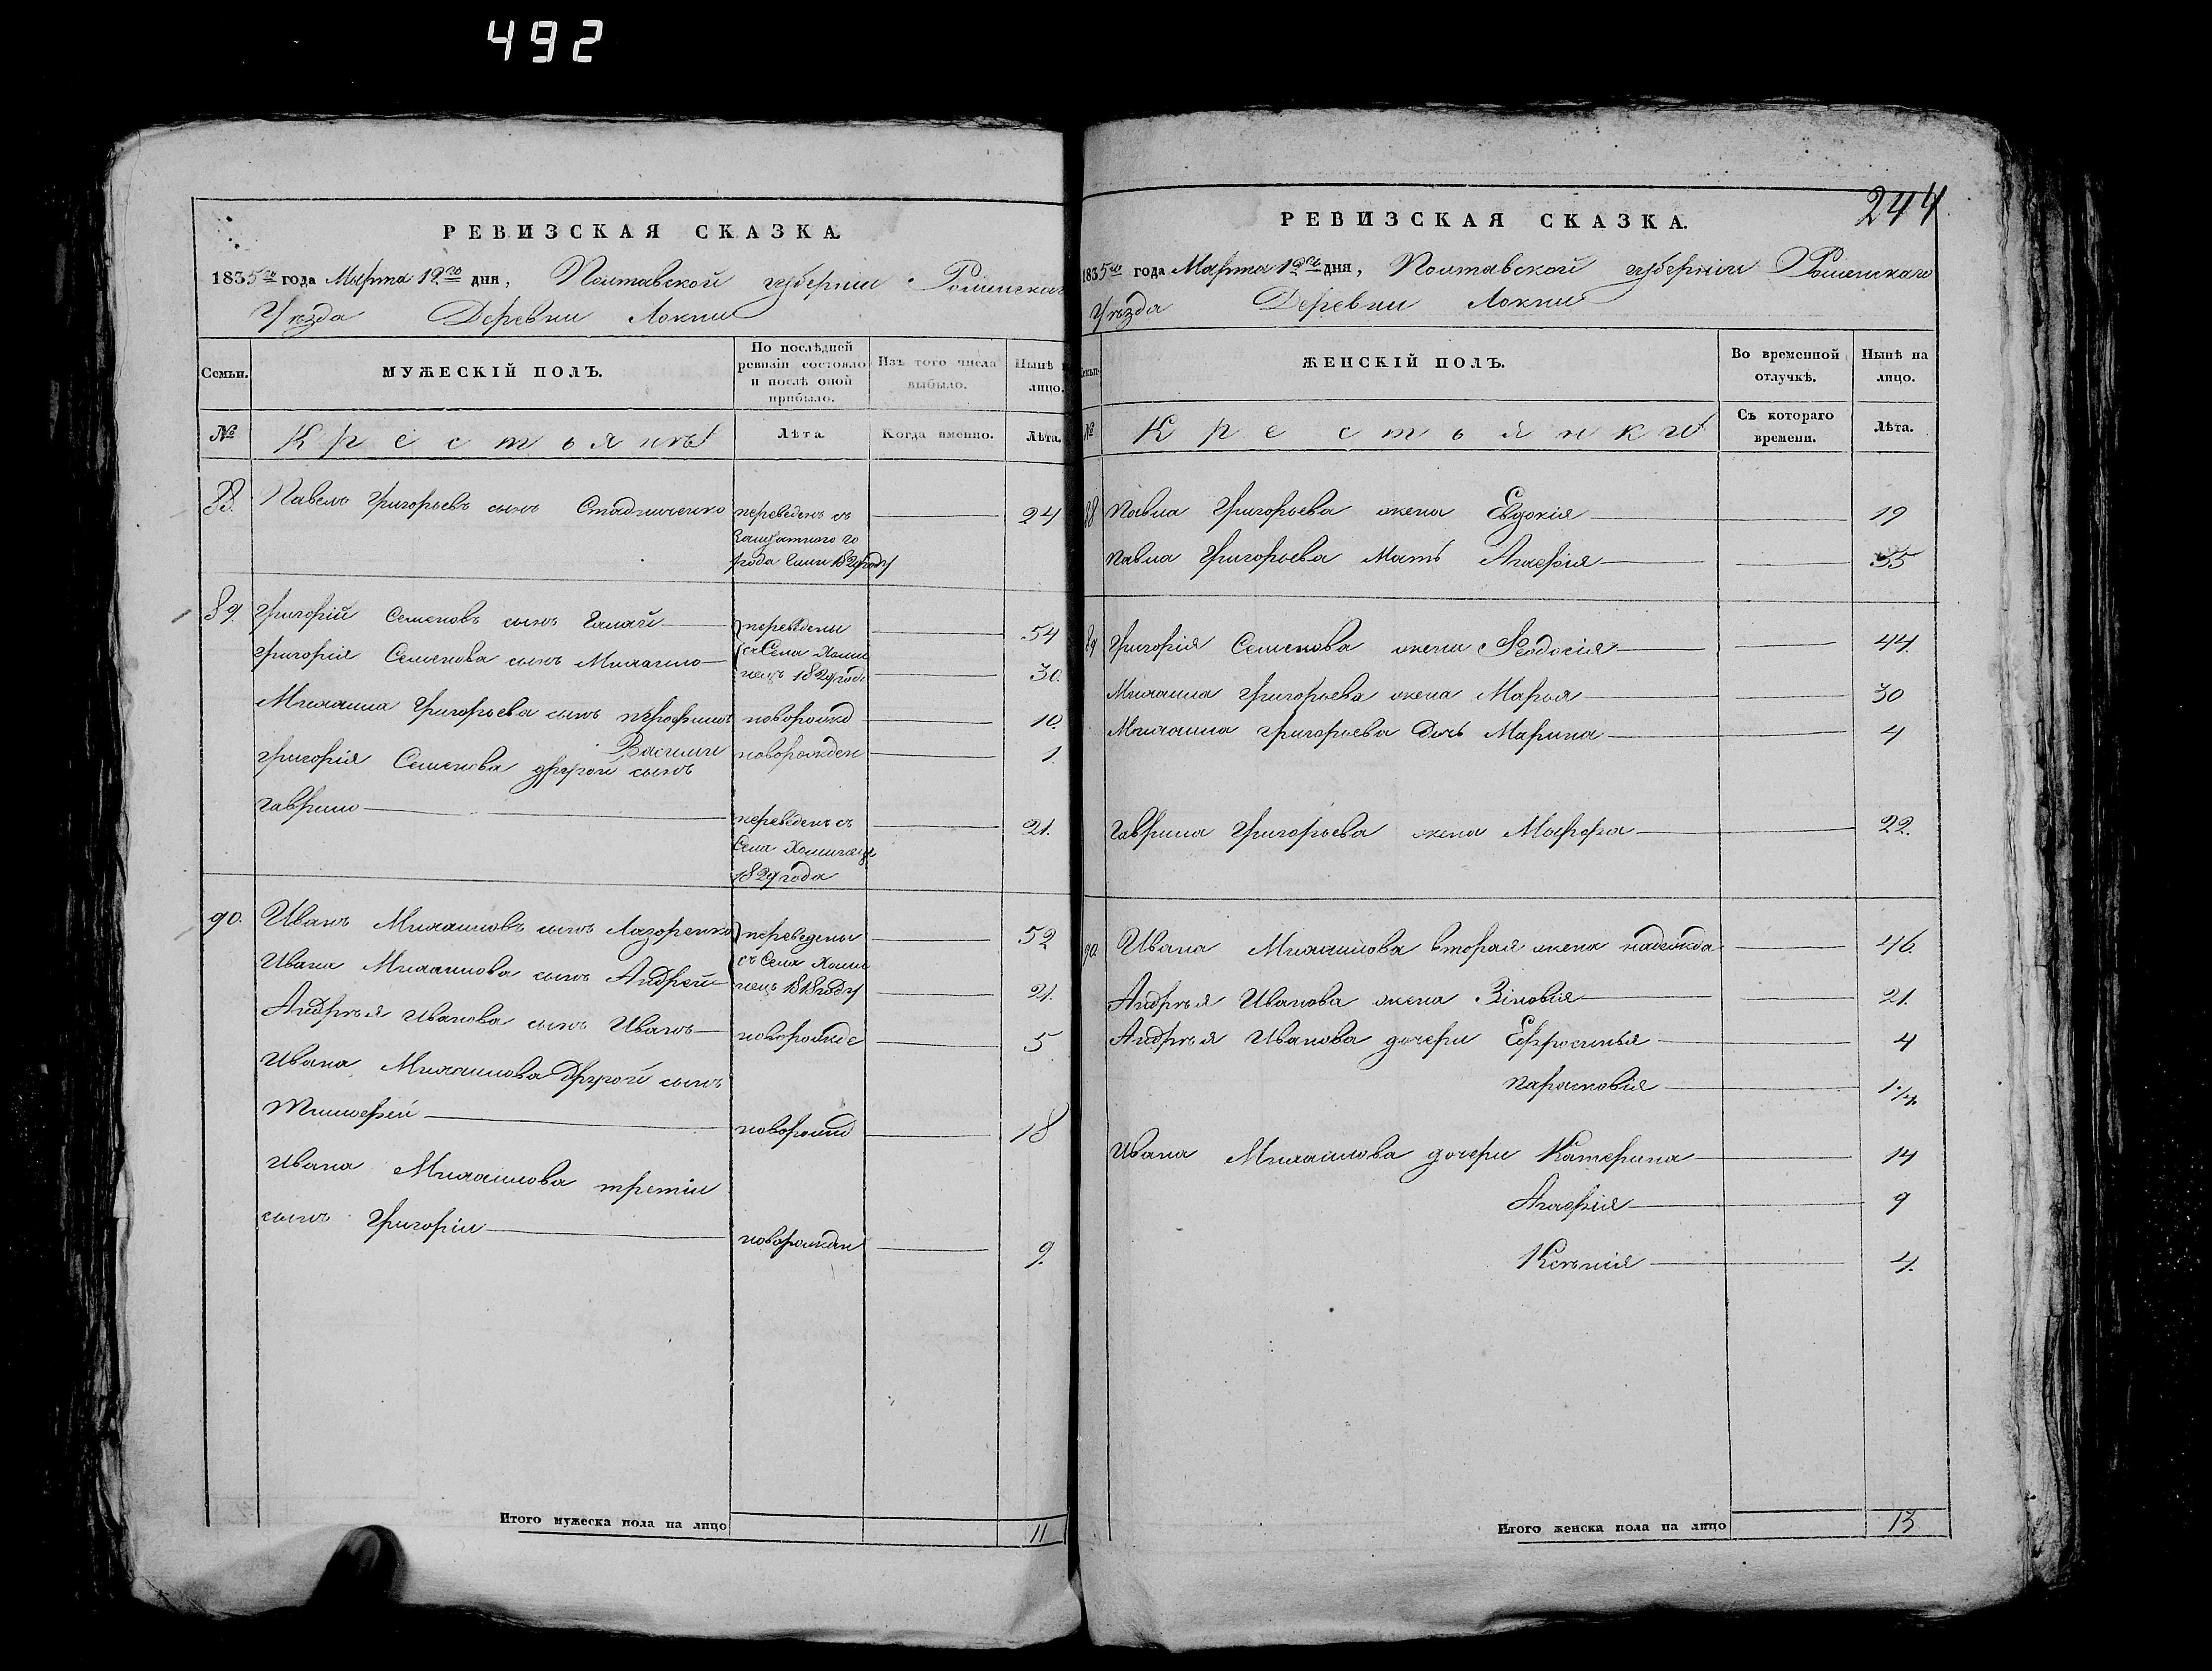 492
РЕВИЗСКАЯ СКАЗКА.
1835го года Марта 19го дня, Полтавской губернии Роменскаго
Уѣзда Деревни Локни
Семьи.
МУЖЕСКІЙ ПОЛЪ.
По послѣдней ревизіи состояло и послѣ оной прибыло.
Изъ того числа выбыло.
Нынѣ на лицо.
№
Крестьянъ
Лѣта.
Когда именно.
Лѣта.
88. Павелъ Григорьевъ сынъ Стадниченко переведенъ съ 24
Заштатного го
рода 1829году
89. Григорій Семеновъ сынъ Галай переведены 54
Григорія Семенова сынъ Михайло съ Села Хоми
нецъ 1829года 30.
Михаила Григорьева сынъ новорожд 10.
Василий новорожден 1.
Григорія Семенова другой сынъ
Гаврило переведенъ съ 21.
Села
1829года
90. Иванъ Михайловъ сынъ Лазоренко переведены 52
Ивана Михайлова сынъ Андрей съ Села Хоми
нецъ 1818году 21.
Андрѣя Иванова сынъ Иванъ новорожде 5
Ивана Михайлова другой сынъ
Тимофей новорожд 18
Ивана Михайлова третіи
сынъ Григоріи новорожден 9.
Итого мужеска пола на лицо 11
244
РЕВИЗСКАЯ СКАЗКА.
1835го года Марта 19го дня, Полтавской губерніи Роменскаго
Уѣзда Деревни Локни
Семьи.
ЖЕНСКІЙ ПОЛЪ.
Во временной отлучкѣ.
Нынѣ на лицо.
№
Крестьянки
Съ котораго времени.
Лѣта.
88 Павла Григорьева жена Евдокія 19
Павла Григорьева Мать Агафія 55
89 Григорія Семенова жена Феодосія 44
Михаила Григорьева жена Марья 30
Михаила Григорьева Дочь Марина 4
Гаврила Григорьева жена Марфа 22.
90. Ивана Михайлова вторая жена надежда 46.
Андрѣя Иванова жена Зіновія 21.
Андрѣя Иванова дочери Ефросинья 4
Парасковія 1 1/4.
Ивана Михайлова дочери Катерина 14
Агафія 9
Ксѣнія 4.
Итого женска пола на лицо 13